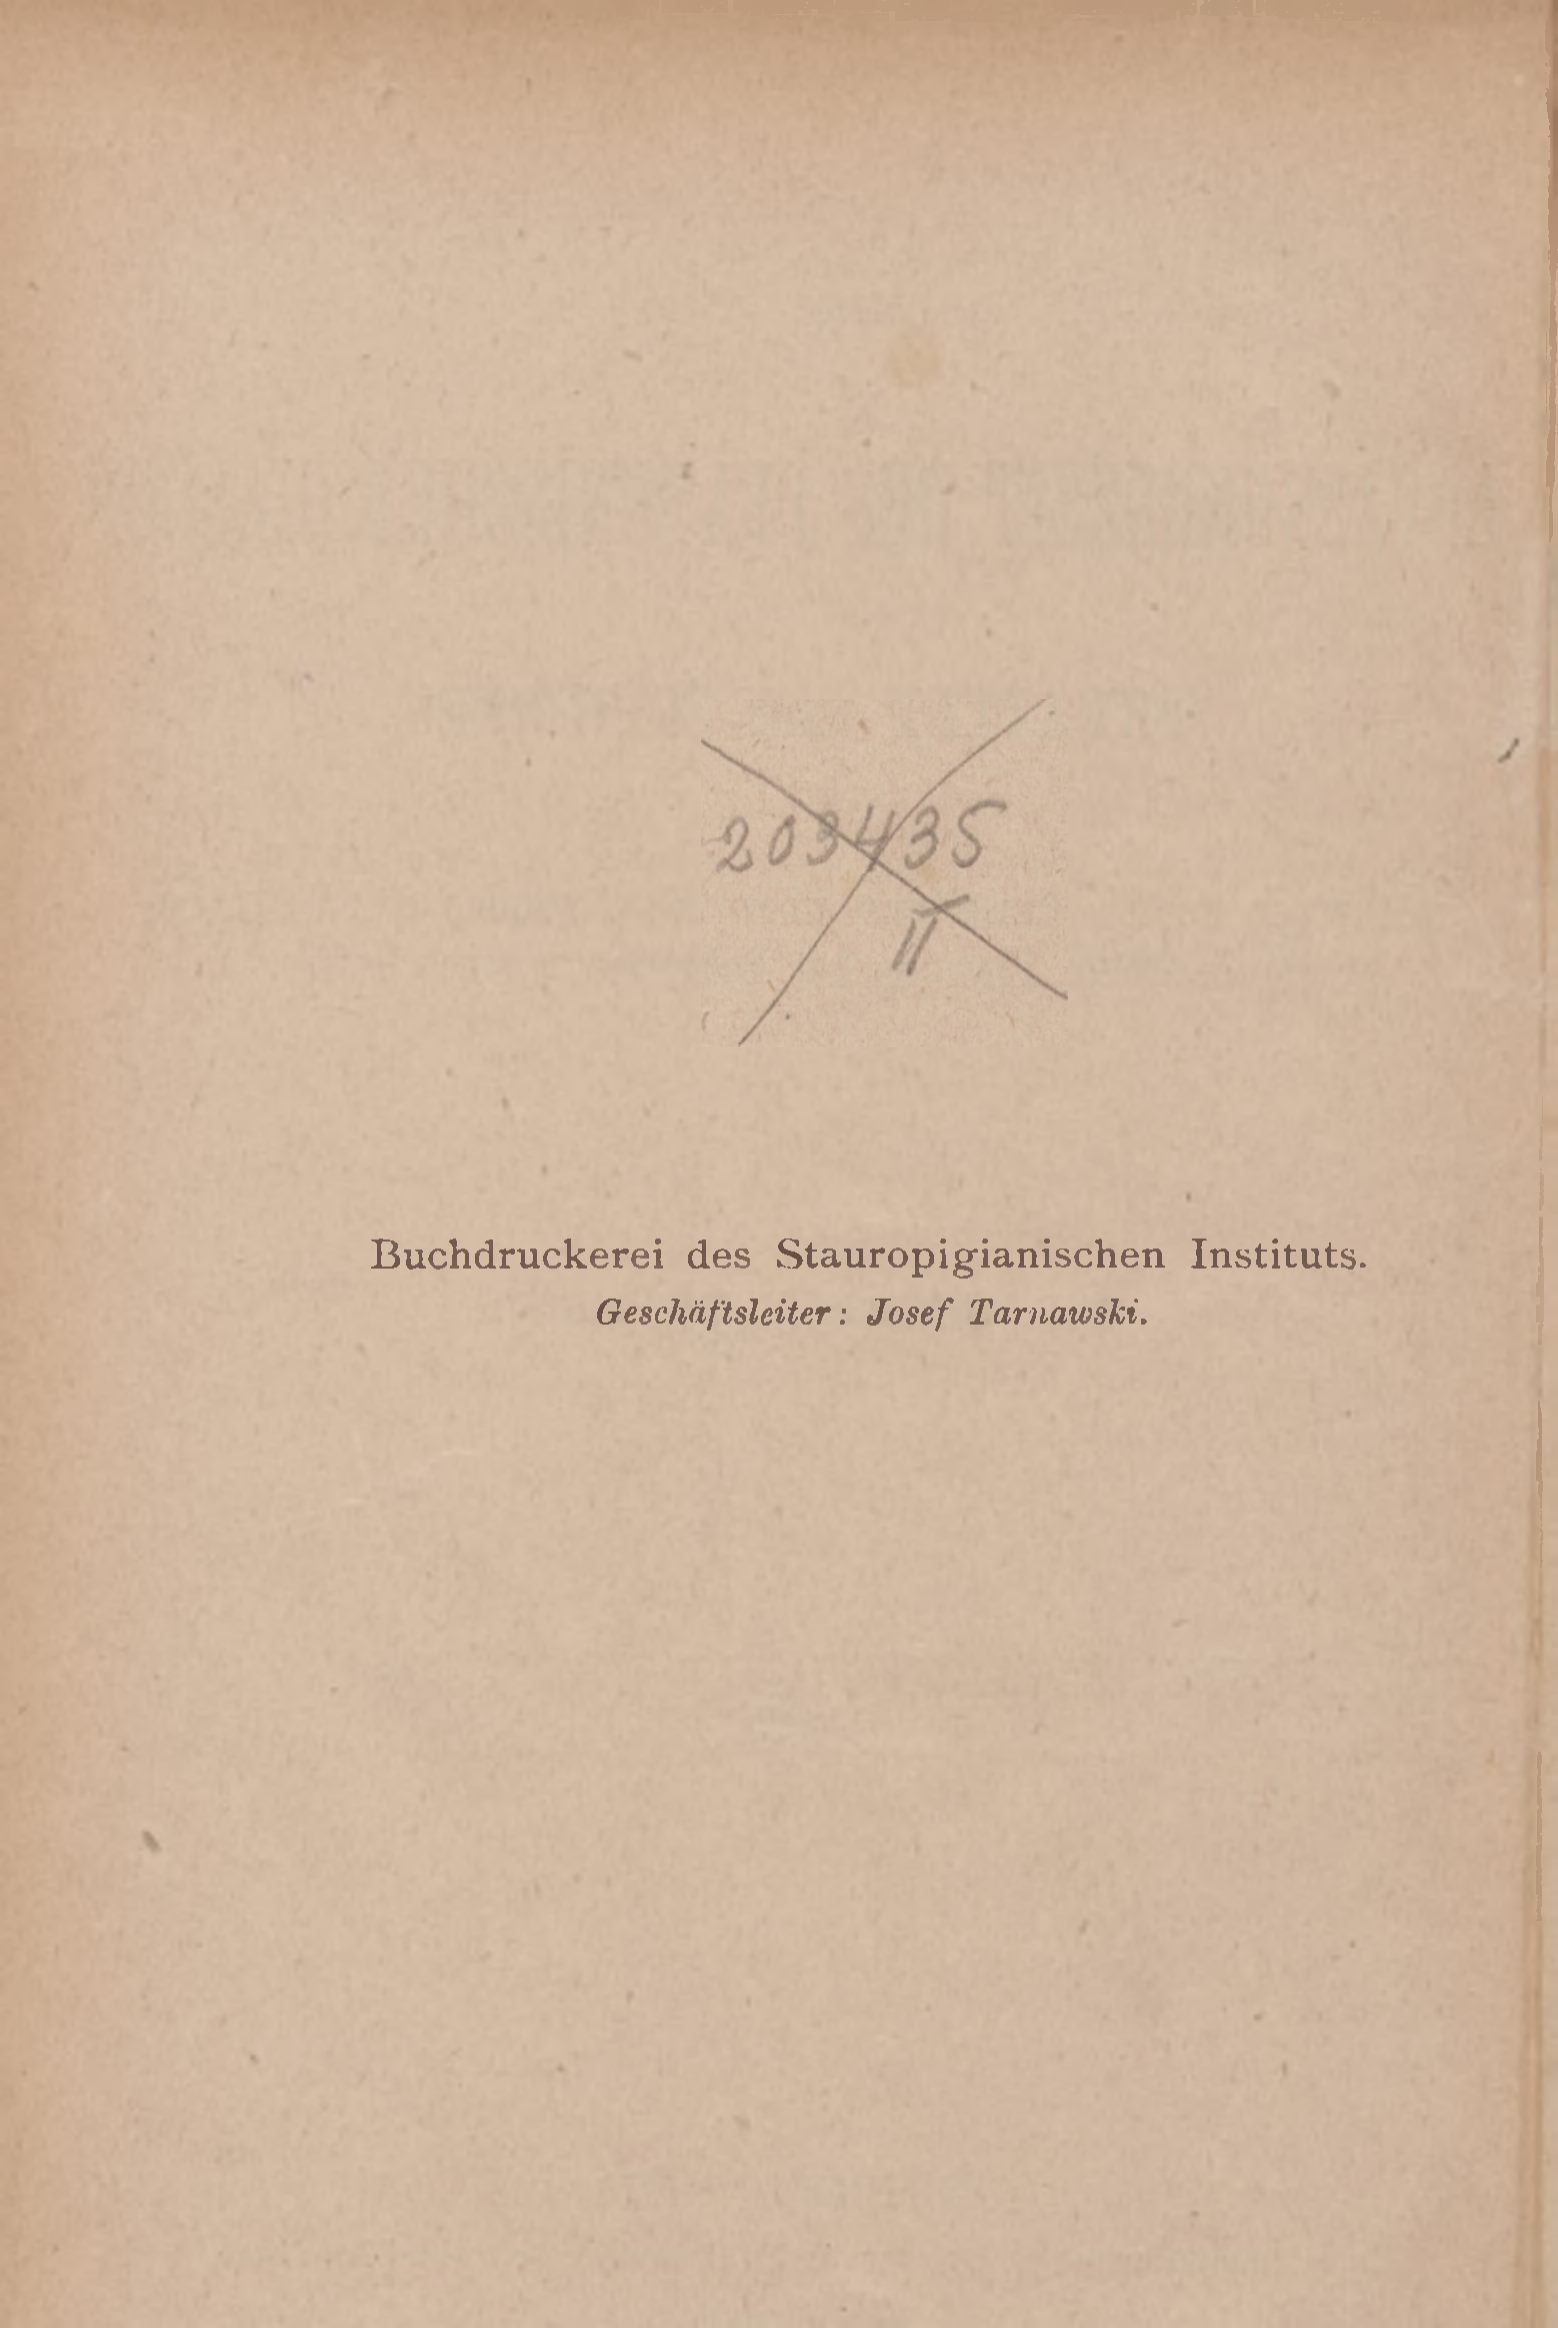 203435
II
Buchdruckerei des Stauropigianischen Instituts.
Geschäftsleiter: Josef Tarnawski.